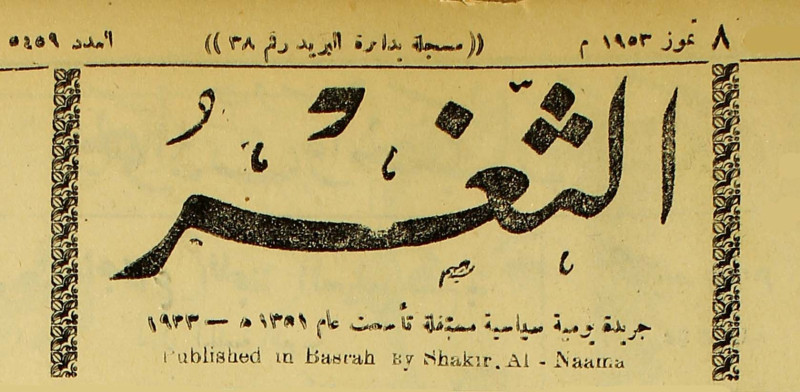 ٨ تموز ١٩٥٣ م ((مسجلة بدائرة البريد رقم ٣٨)) العدد ٥٤٥٩
الثغر
جريدة يومية سياسية مستقلة تأسست عام ١٣٥١ ه — ١٩٣٣
Published in Basrah By Shakir. Al - Naama